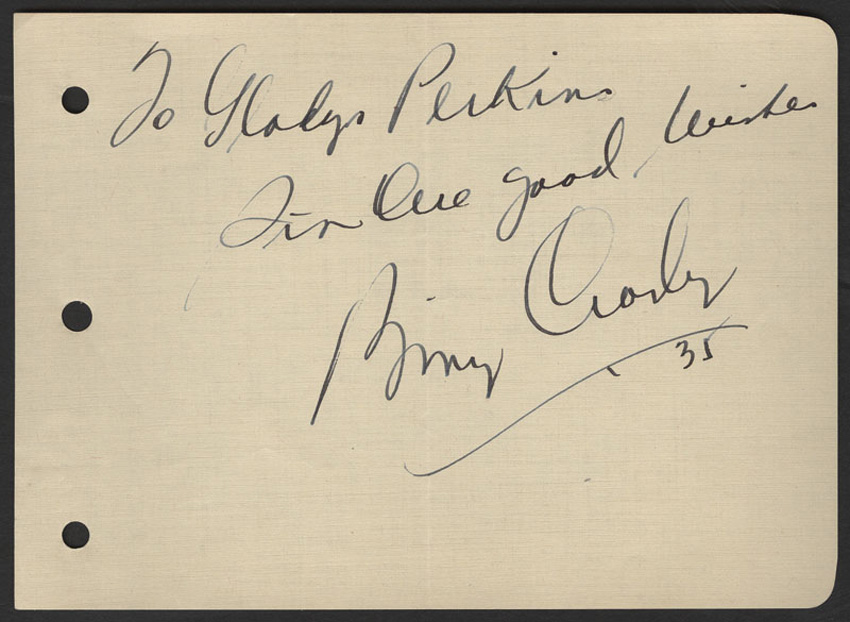 To Gladys Perkins
Sincere good wishes
Bing Crosby
35